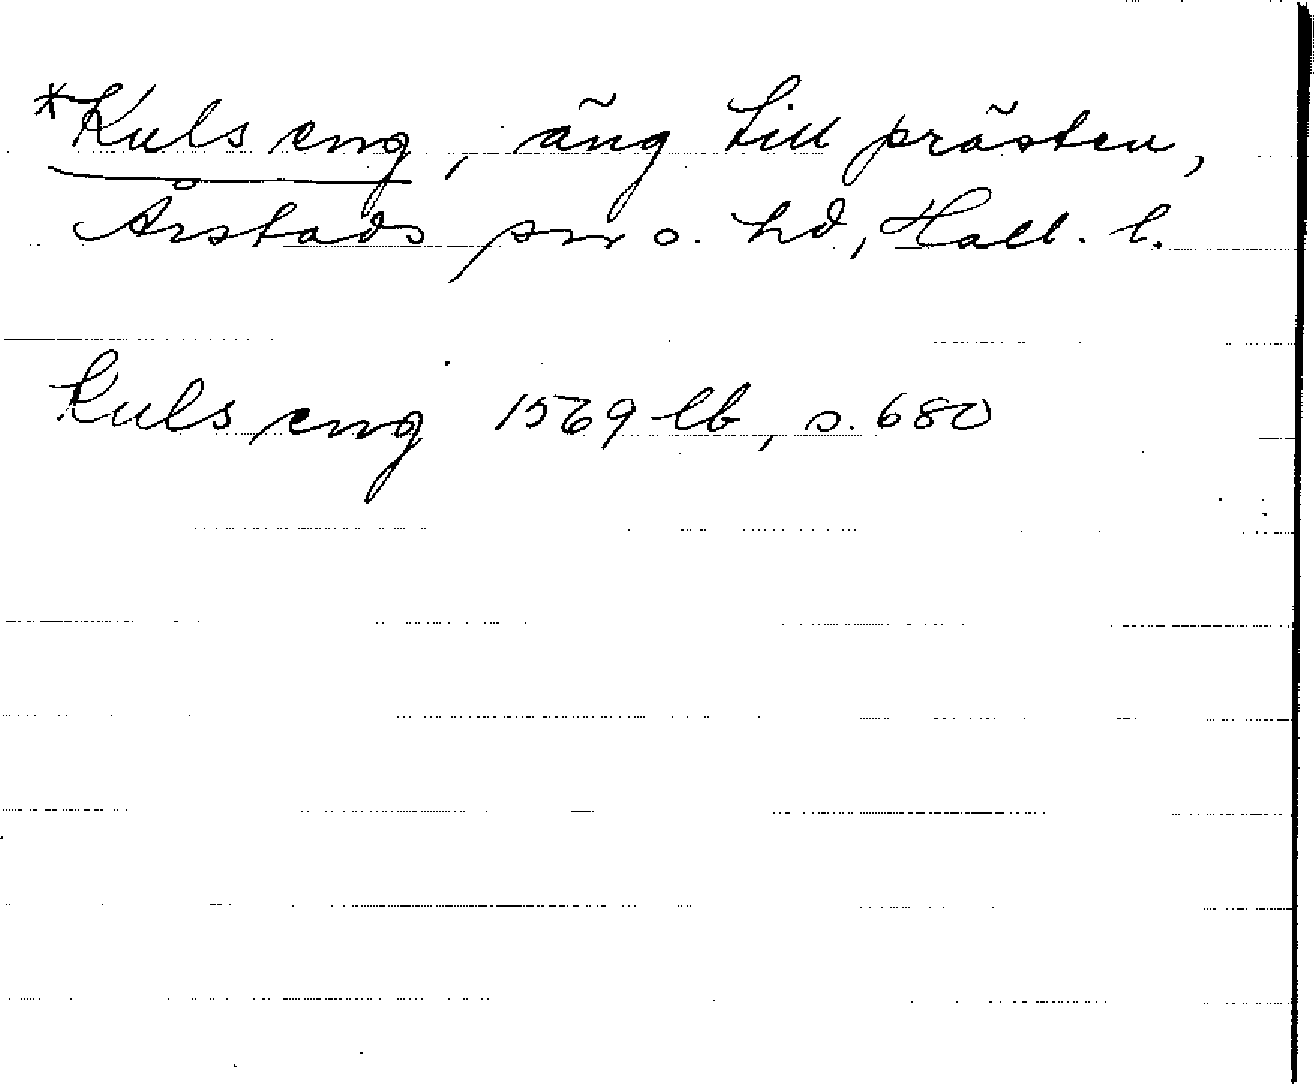 *Kuls eng, äng till prästen,
Årstads sn o. hd, Hall. l.
Kuls eng 1569 lb, s. 680